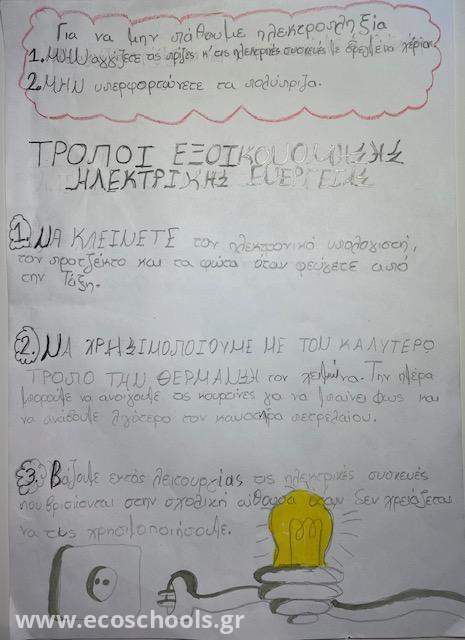 Για να μην πάθουμε ηλεκτροπληξία
1. ΜΗΝ αγγίζετε τις πρίζες κ τις ηλεκτρικές συσκευές με βρεγμένα χέρια.
2. ΜΗΝ υπερφορτώνετε τα πολύπριζα.
ΤΡΟΠΟΙ ΕΞΟΙΚΟΝΟΜΗΣΗΣ
ΗΛΕΚΤΡΙΚΗΣ ΕΝΕΡΓΕΙΑΣ
1. ΝΑ ΚΛΕΙΝΕΤΕ τον ηλεκτρονικό υπολογιστή,
τον προτζέκτο και τα φώτα όταν φεύγετε από
την Τάξη.
2. ΝΑ ΧΡΗΣΙΜΟΠΟΙΟΥΜΕ ΜΕ ΤΟΝ ΚΑΛΥΤΕΡΟ
ΤΡΟΠΟ ΤΗΝ ΘΕΡΜΑΝΣΗ τον χειμώνα. Την ημέρα
μπορούμε να ανοίγουμε τις κουρτίνες για να μπαίνει φως και
να ανάβουμε λιγότερο τον καυστήρα πετρελαίου.
3. Βάζουμε εκτός λειτουργίας τις ηλεκτρικές συσκευές
που βρίσκονται στην σχολική αίθουσα όταν δεν χρειάζεται
να τις χρησιμοποιήσουμε.
www.ecoschools.gr